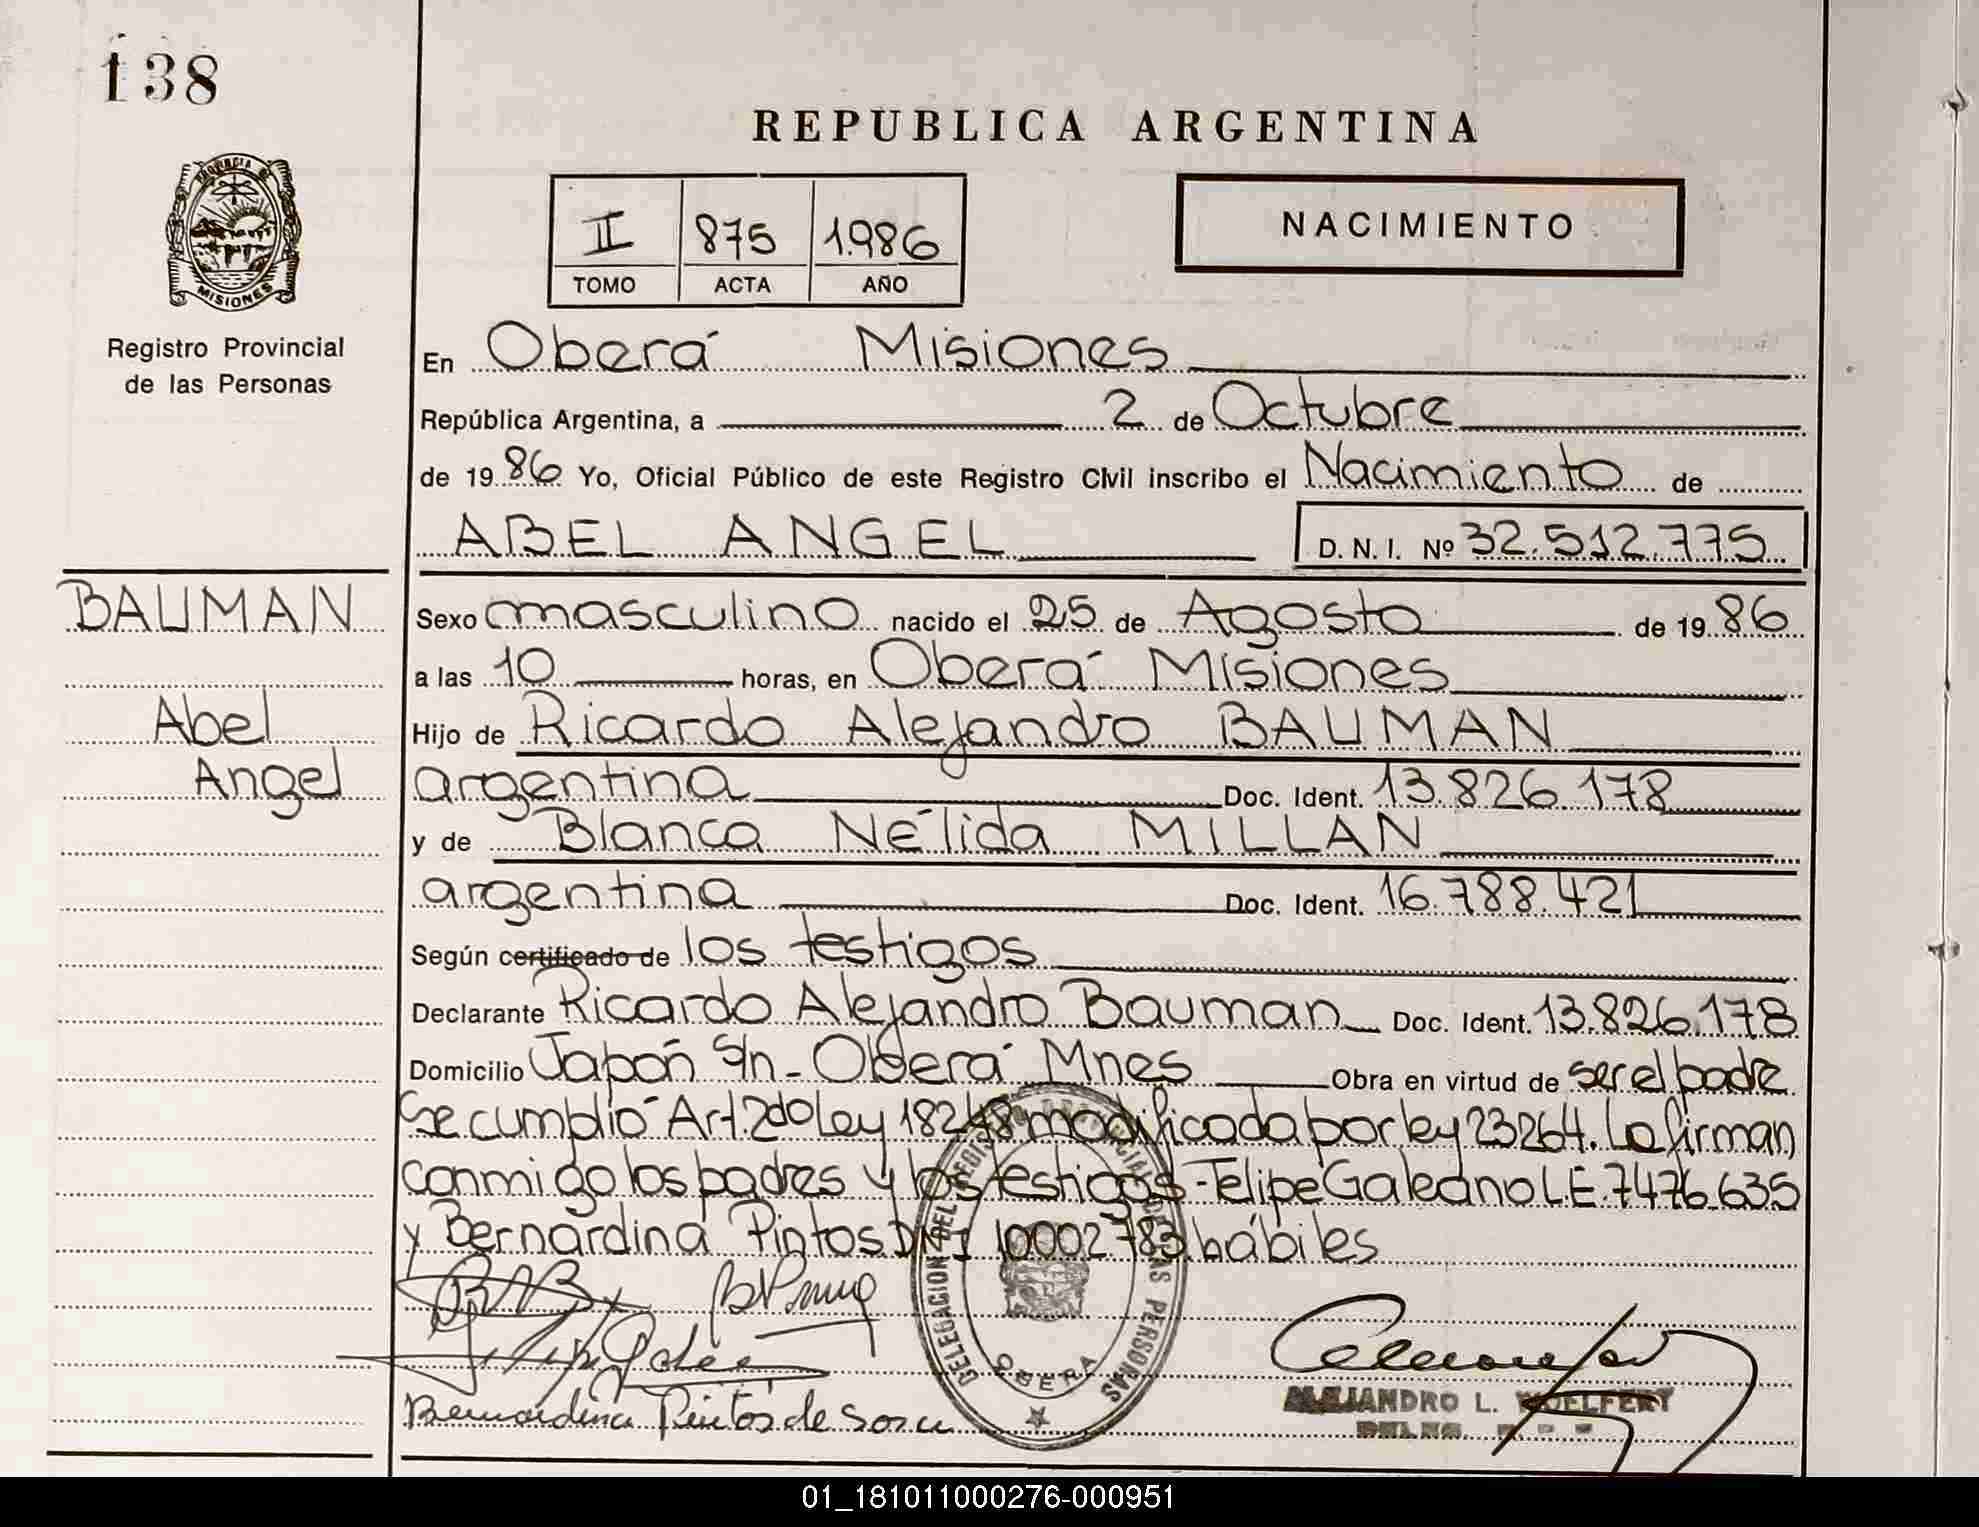 138
REPUBLICA ARGENTINA
PROVINCIA DE
MISIONES
II 875 1.986
TOMO ACTA AÑO
NACIMIENTO
Registro Provincial
de las Personas
En Oberá Misiones
República Argentina, a 2 de Octubre
de 19 86 Yo, Oficial Público de este Registro Civil inscribo el Nacimiento de
ABEL ANGEL D. N. I. Nº 32.512.775
BAUMAN
Abel
Angel
Sexo masculino nacido el 25 de Agosto de 19 86
a las 10 horas, en Oberá Misiones
Hijo de Ricardo Alejandro BAUMAN
argentina Doc. Ident. 13.826.178
y de Blanca Nélida MILLAN
argentina Doc. Ident. 16.788.421
Según certificado de los testigos
Declarante Ricardo Alejandro Bauman Doc. Ident. 13.826.178
Domicilio Japón S/n - Oberá Mnes Obra en virtud de ser el padre
Se cumplió Art. 2do Ley 18248 modificada por ley 23264. La firman
conmigo los padres y los testigos - Felipe Galeano L.E. 7476.635
y Bernardina Pintos DNI 10002.783 hábiles
Bernardina Pintos de Sosa
DELEGACION DEL REGISTRO PROVINCIAL DE LAS PERSONAS
OBERA
ALEJANDRO L. WOELFERT
01_181011000276-000951